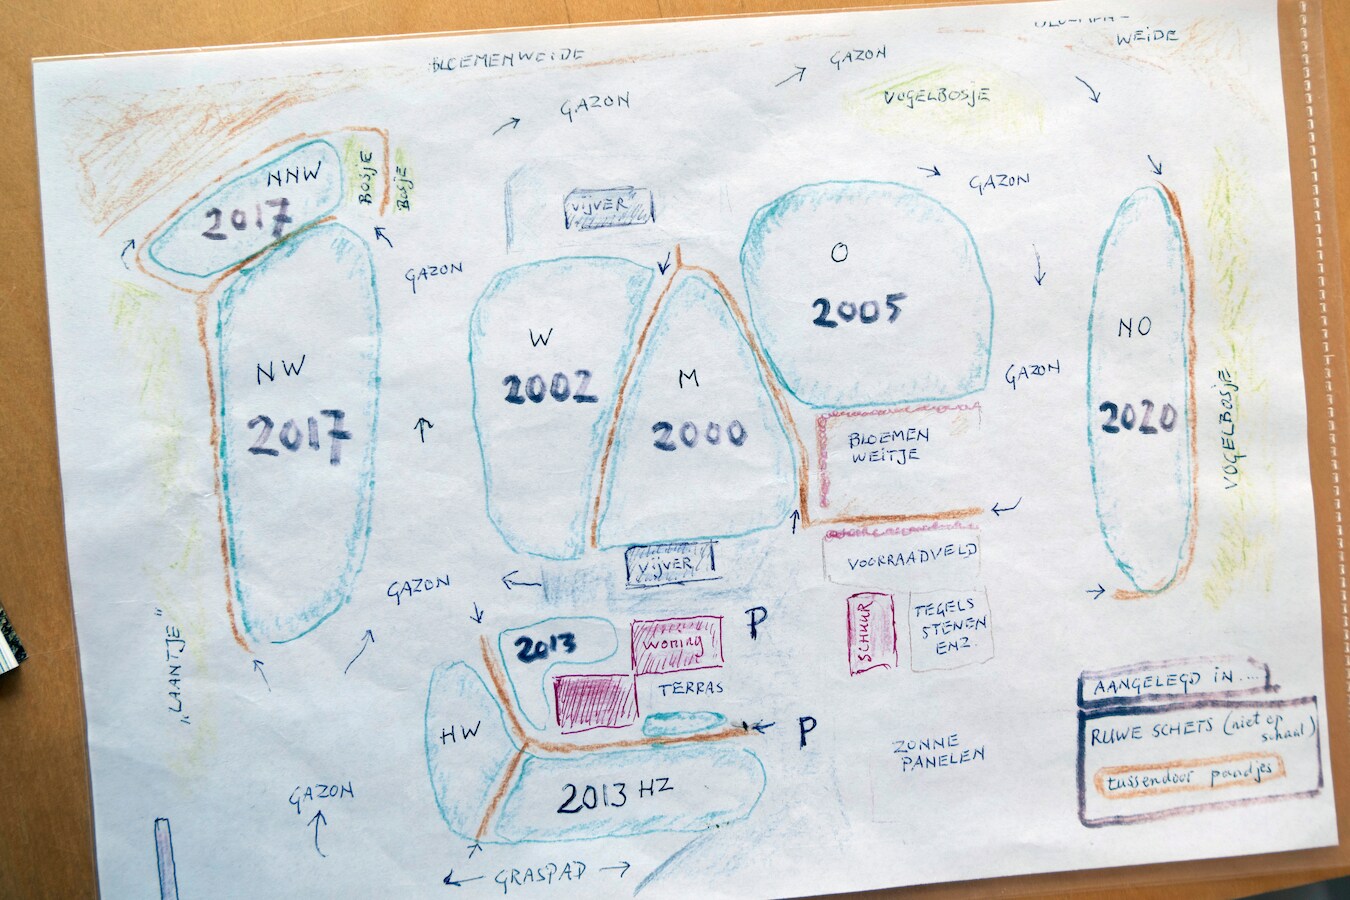 BLOEMENWEIDE
GAZON
WEIDE
GAZON
VOGELBOSJE
NNW
2017
BOSJE
BOSJE
"VIJVER"
GAZON
GAZON
O
2005
NW
2017
W
2002
M
2000
GAZON
NO
2020
VOGELBOSJE
BLOEMEN
WEITJE
VOORRAADVELD
"VIJVER"
GAZON
"LAANTJE"
2013
WONING
P
SCHUUR
TEGELS
STENEN
ENZ.
TERRAS
HW
P
ZONNE
PANELEN
2013 HZ
GAZON
GRASPAD
AANGELEGD IN....
RUWE SCHETS (niet op
schaal)
tussendoor paadjes